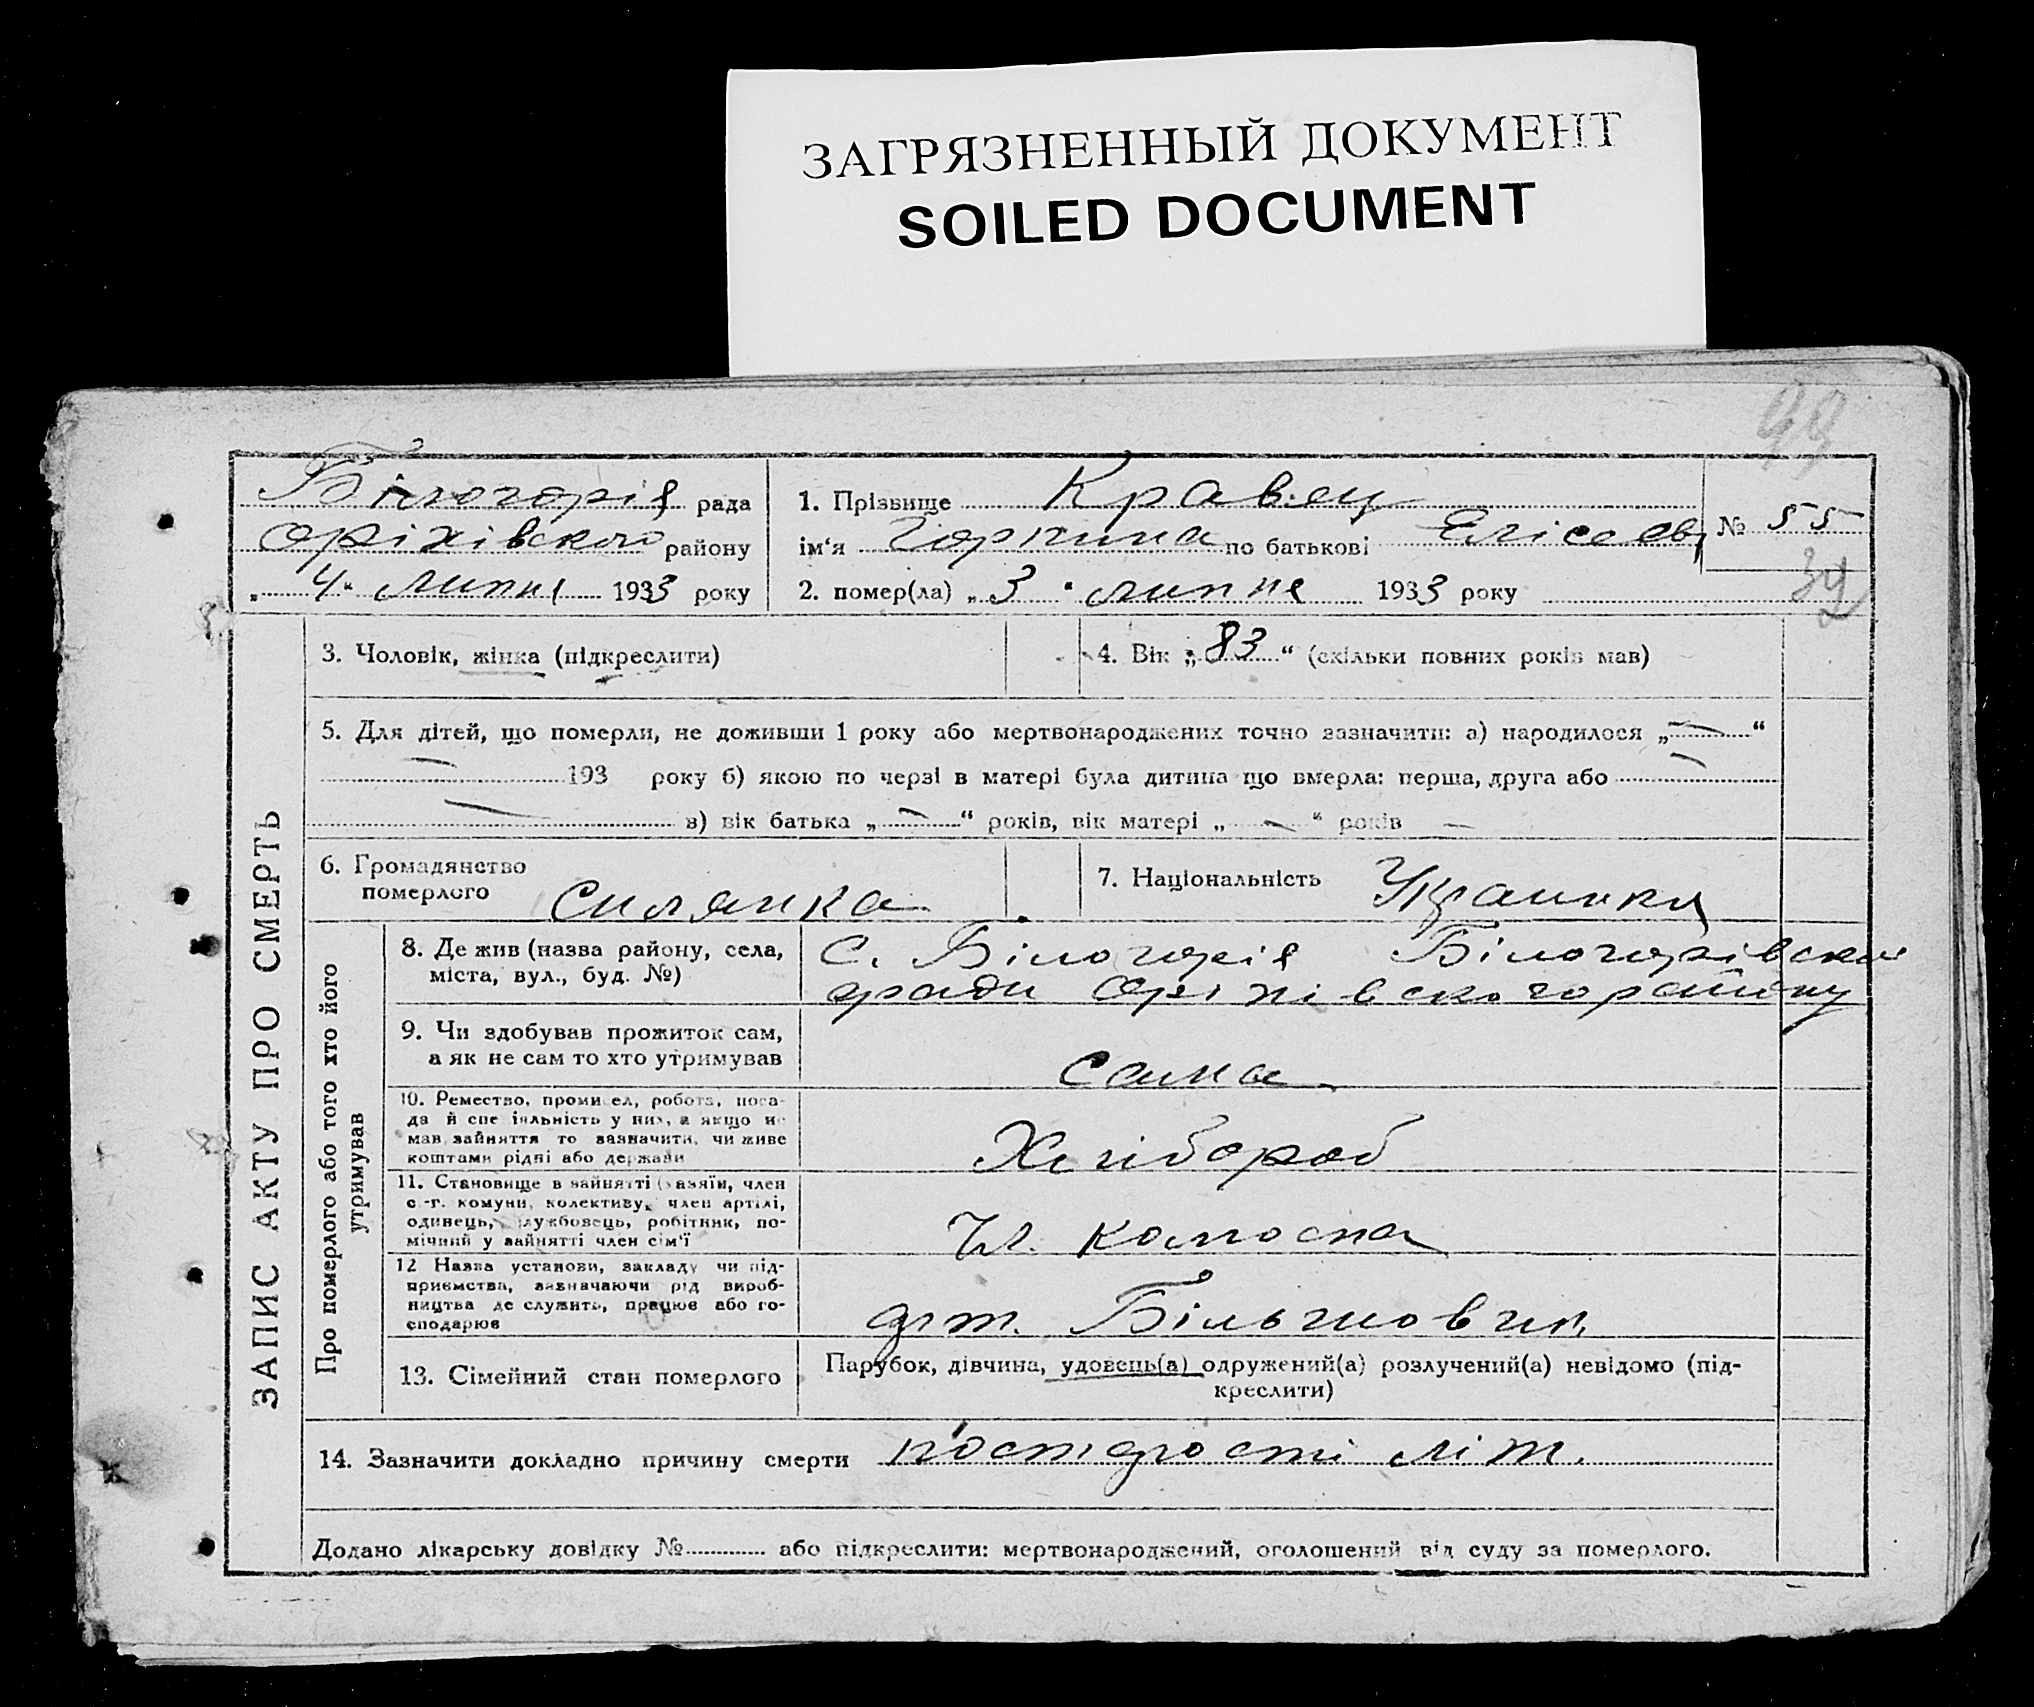 ЗАГРЯЗНЕННЫЙ ДОКУМЕНТ
SOILED DOCUMENT
Білогорія рада
Оріхівского району
„ 4 “ липня 1933 року
1. Прізвище Кравец
ім‘я по батькові Елісеев
2. помер(ла) „ 3 “ липня 1933 року
№ 55
39
ЗАПИС АКТУ ПРО СМЕРТЬ
3. Чоловік, жінка (підкреслити)
4. Вік „ 83 “ (скільки повних років мав)
5. Для дітей, що померли, не доживши 1 року або мертвонароджених точно зазначити: а) народилося „ — “
— 193 року б) якою по черзі в матері була дитина що вмерла: перша, друга або —
— в) вік батька „ — “ років, вік матері „ — “ років —
6. Громадянство
померлого Силянка
7. Національність Украинка
Про померлого або того хто його
утримував
8. Де жив (назва району, села,
міста, вул., буд. №)
С. Білогорія Білогорівскои
ради Оріхівского району
9. Чи здобував прожиток сам,
а як не сам то хто утримував
сама
10. Ремество, промисел, робота, поса-
да й спеціяльність у них, а якщо не
мав зайняття то зазначити, чи живе
коштами рідні або держави
Хлібороб
11. Становище в зайнятті (хазяїн, член
с.-г. комуни, колективу, член артілі,
одинець, службовець, робітник, по-
мічний у зайнятті член сім‘ї
Чл. колгоспа
12 Назва установи, закладу чи під-
приємства, зазначаючи рід вироб-
ництва де служить, працює або го-
сподарює
арт. Більшовик
13. Сімейний стан померлого
Парубок, дівчина, удовець(а) одружений(а) розлучений(а) невідомо (під-
креслити)
14. Зазначити докладно причину смерти по старости літ.
Додано лікарську довідку № або підкреслити: мертвонароджений, оголошений від суду за померлого.